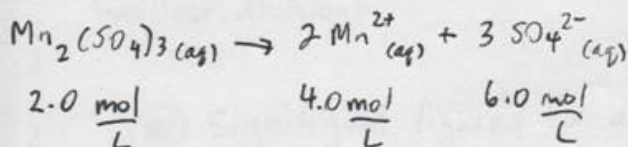 Mn₂(SO₄)₃(aq) → 2 Mn²⁺(aq) + 3 SO₄²⁻(aq)
2.0 mol/L 4.0 mol/L 6.0 mol/L